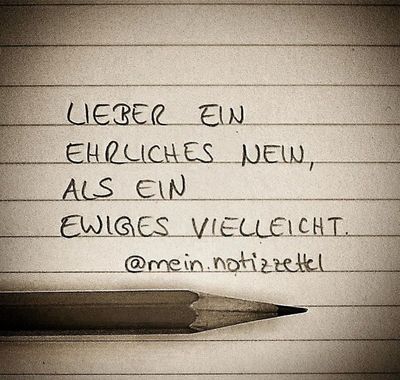 LIEBER EIN
EHRLICHES NEIN,
ALS EIN
EWIGES VIELLEICHT.
@mein.notizzettel